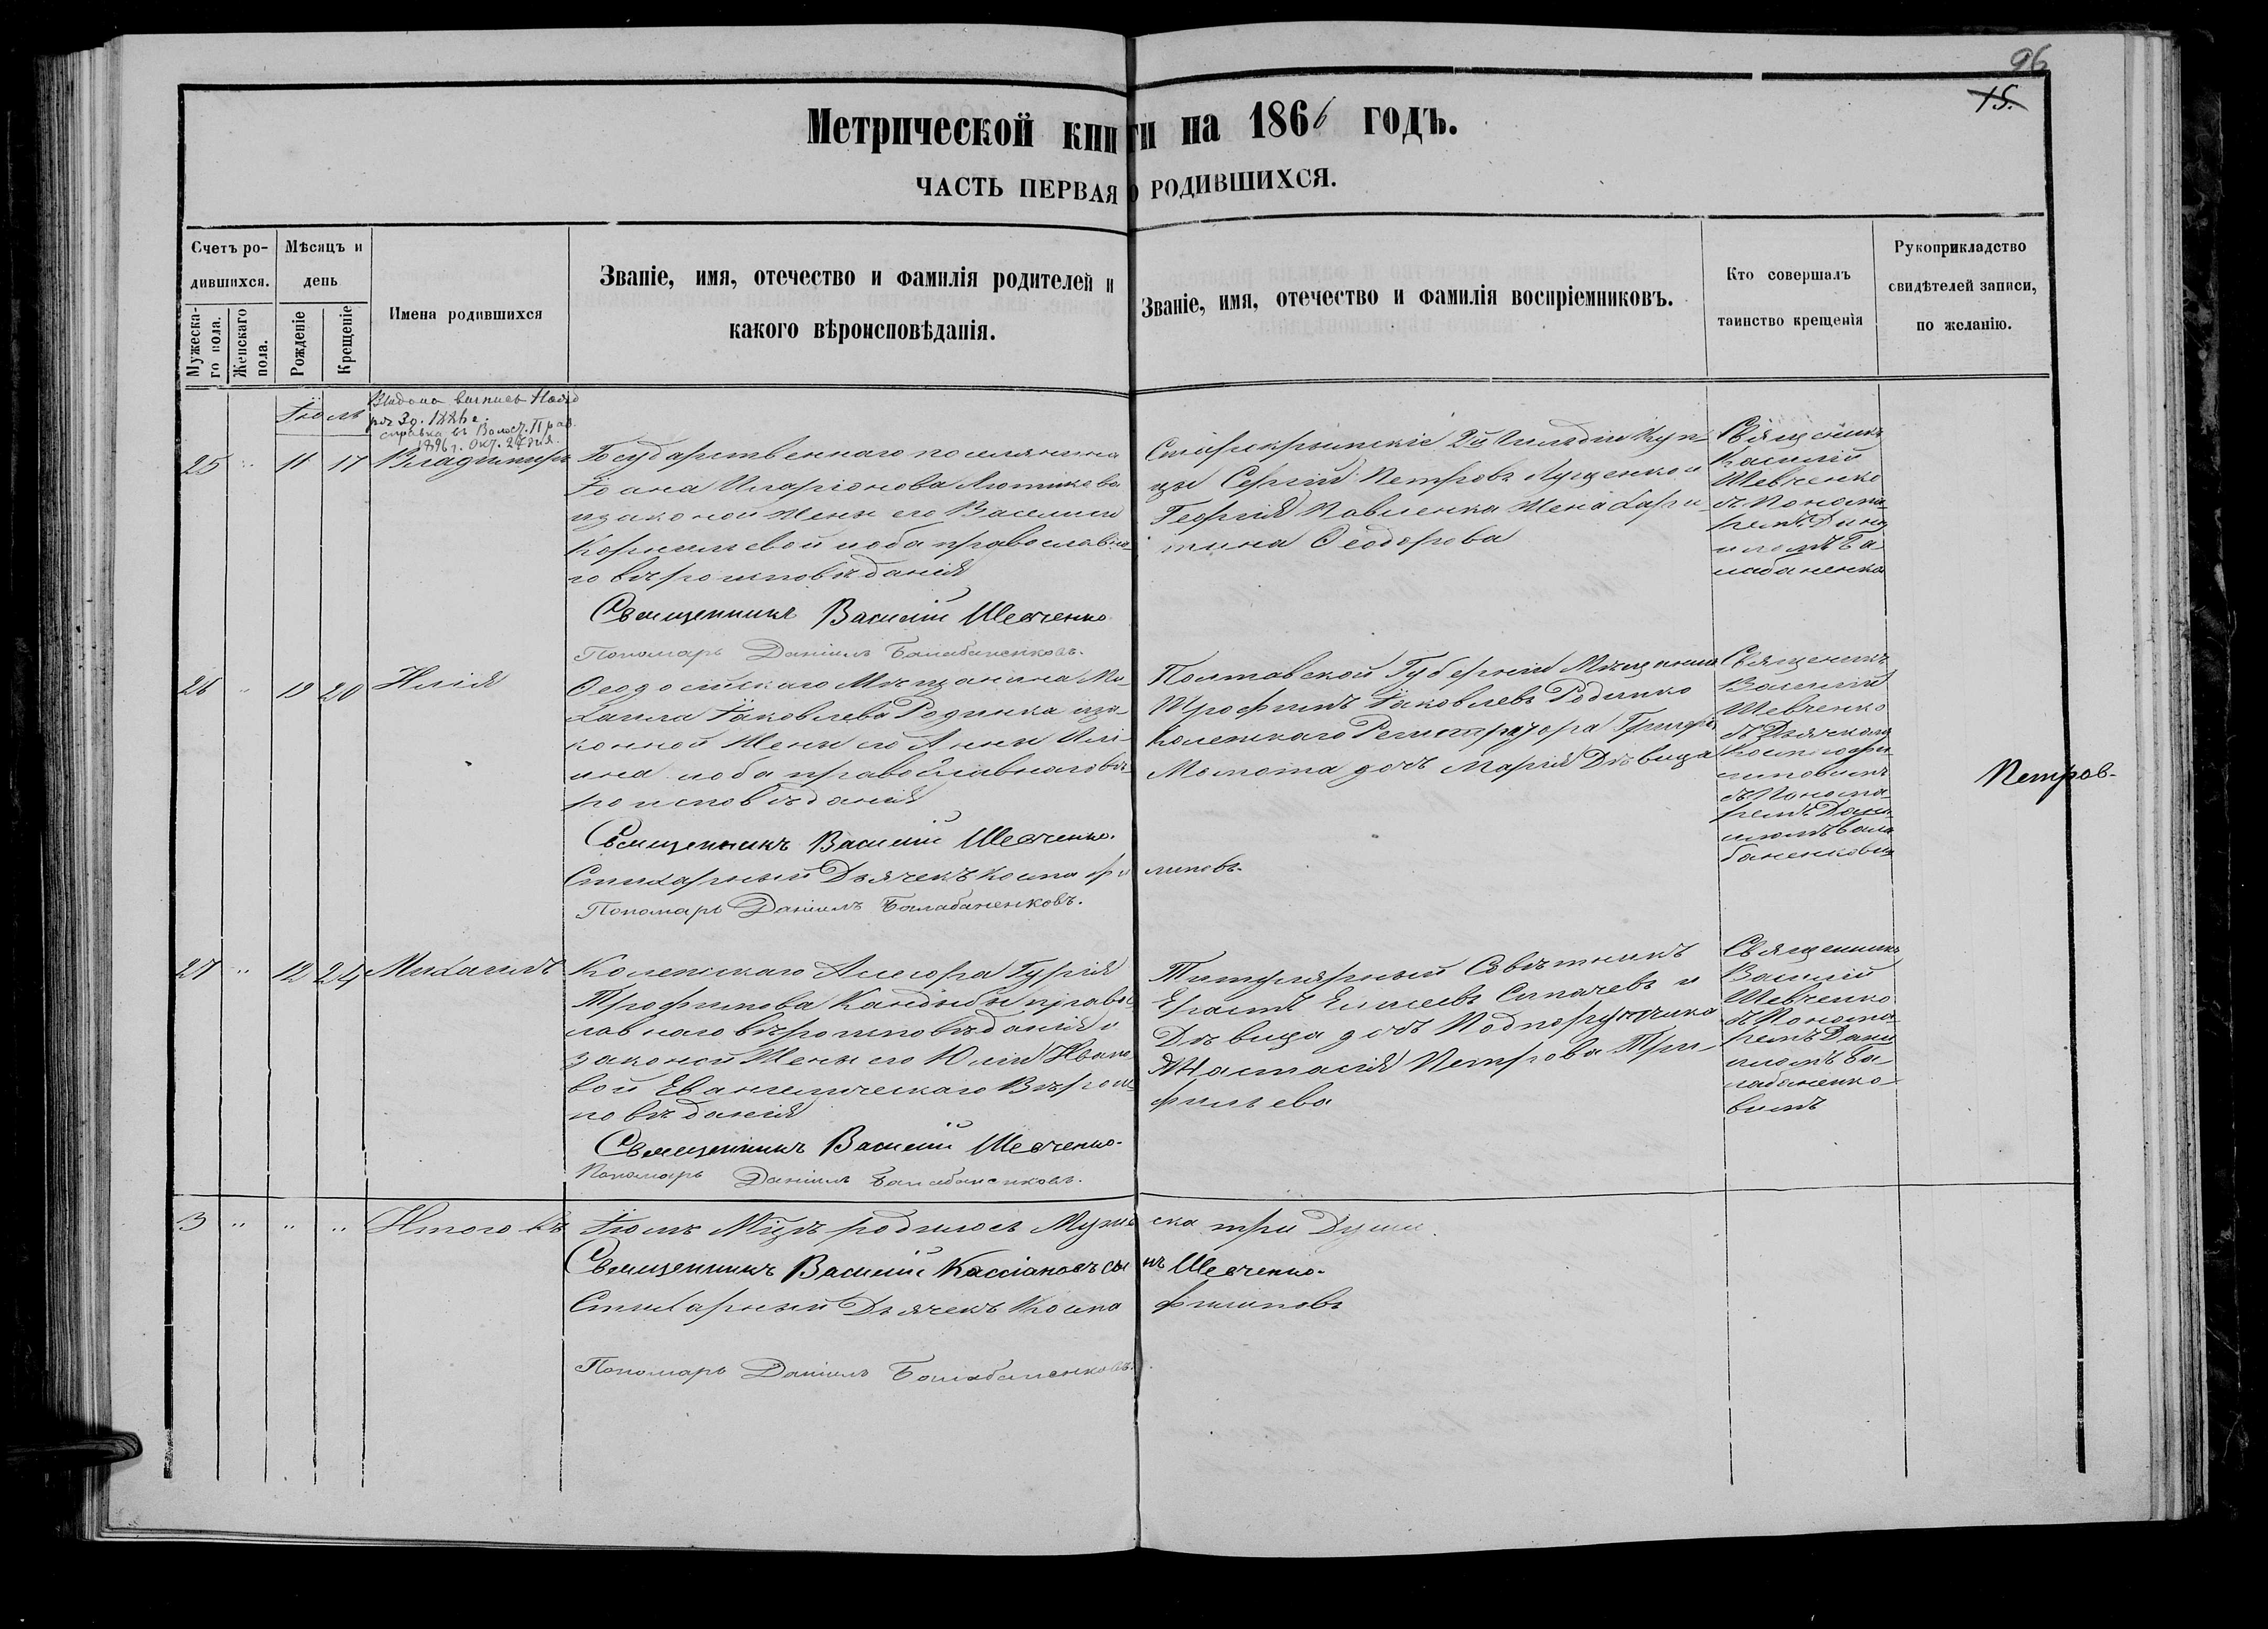 96
15.
Метрической книги на 1866 годъ.
ЧАСТЬ ПЕРВАЯ О РОДИВШИХСЯ.
Счетъ ро-
дившихся.
Мужеска-
го пола.
Женскаго
пола.
Мѣсяцъ и
день
Рожденіе
Крещеніе
Имена родившихся
Званіе, имя, отечество и фамилія родителей и
какого вѣроисповѣданія.
Званіе, имя, отечество и фамилія воспріемниковъ.
Кто совершалъ
таинство крещенія
Рукоприкладство
свидѣтелей записи,
по желанію.
Іюль
Выдана выпись
справка въ Волост. Прав.
1896 г. Окт. 27 дня.
25 " 11 17 Владимиръ
Государственнаго поселянина
Іоана Иларіонова Лютикова
изаконой жены его Василисы
Корнильевой иоба православна-
го вѣроисповѣданія
Священникъ Василій Шевченко
Пономарь Даніилъ Балабаненковъ.
Старокрымскіе 2й Гильдіи Куп-
цы Сергій Петровъ Луценко и
Георгія Павленка Жена Хари-
тина Ѳеодорова
Священикъ
Василій
Шевченко
съ Понома-
ремъ Дани
иломъ Ба
лабаненко
26 " 19 20 Илія
Ѳеодосійскаго Мѣщанина Ми-
хаила Іаковлева Родинка иза-
конной Жены его Анны Илі-
ина иоба православнаго вѣ-
роисповѣданія
Священникъ Василій Шевченко.
Стихарный Дьячекъ Косма Филиповъ.
Пономарь Даніилъ Балабаненковъ.
Полтавской Губерніи Мѣщанинъ
Трофимъ Іаковлевъ Родинко
Колежкаго Регистратора Григорія
Момота дочь Марія Дѣвица
Священикъ
Василій
Шевченко
съ Дьячкомъ
Космою Фи-
липовымъ
съ Понома-
ремъ Дани-
иломъ Бала
баненковым
Петров-
27 " 12 24 Михаилъ
Колежскаго Асесора Гурія
Трофимова Кандыбы правос-
лавнаго вѣроисповѣданія и
законой Жены его Юліи Ивано-
вой Евангелическаго Вѣроис-
повѣданія
Священникъ Василій Шевченко.
Пономарь Даніилъ Балабаненковъ.
Титулярный Совѣтникъ
Ерастъ Елисеевъ Сипачевъ и
Дѣвица дочь Подпоручика
Анастасія Петрова Три-
фильева
Священникъ
Василій
Шевченко
съ Понома-
ремъ Дани
иломъ Ба-
лабаненко-
вымъ
3 " " " Итого въ Іюлѣ Мцѣ родилось Мужеска три Души.
Священникъ Василій Кассіановъ сынъ Шевченко.
Стихарный Дьячекъ Косма Филиповъ
Пономарь Даніилъ Балабаненковъ.